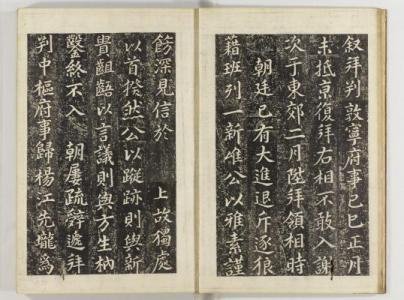 叙拜判敦寧府事己巳正月
未抵京復拜右相不敢入謝
次于東郊二月陞拜領相時
朝廷已有大進退斥逐狼
藉班列一新 公以雅素謹
飭深見信於 上故獨處
以首揆然公以蹤跡則與新
貴齟齬以言議則與方生枘
鑿終不入 朝屢疏辭遞拜
判中樞府事歸楊江先壠爲